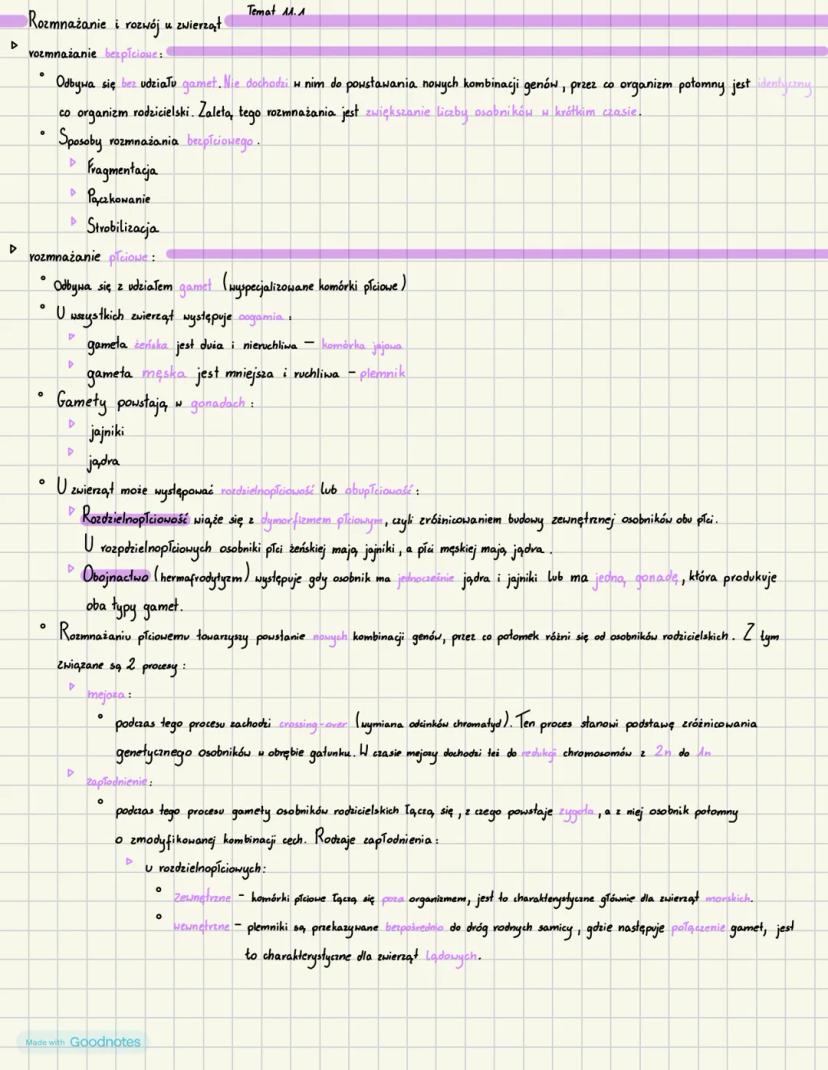 Temat 11.1
Rozmnażanie i rozwój u zwierząt
rozmnażanie bezpłciowe:
Odbywa się bez udziału gamet. Nie dochodzi w nim do powstawania nowych kombinacji genów, przez co organizm potomny jest identyczny
co organizm rodzicielski. Zaletą tego rozmnażania jest zwiększanie liczby osobników w krótkim czasie.
Sposoby rozmnażania bezpłciowego.
Fragmentacja
Pączkowanie
Strobilizacja
rozmnażanie płciowe:
Odbywa się z udziałem gamet (wyspecjalizowane komórki płciowe)
U wszystkich zwierząt występuje oogamia:
gameta żeńska jest duża i nieruchliwa – komórka jajowa
gameta męska jest mniejsza i ruchliwa – plemnik
Gamety powstają w gonadach:
jajniki
jądra
U zwierząt może występować rozdzielnopłciowość lub obupłciowość:
Rozdzielnopłciowość wiąże się z dymorfizmem płciowym, czyli zróżnicowaniem budowy zewnętrznej osobników obu płci.
U rozpdzielnopłciowych osobniki płci żeńskiej mają jajniki, a płci męskiej mają jądra.
Obojnactwo (hermafrodytyzm) występuje gdy osobnik ma jednocześnie jądra i jajniki lub ma jedną gonadę, która produkuje
oba typy gamet.
Rozmnażaniu płciowemu towarzyszy powstanie nowych kombinacji genów, przez co potomek różni się od osobników rodzicielskich. Z tym
związane są 2 procesy:
mejoza:
podczas tego procesu zachodzi crossing-over (wymiana odcinków chromatyd). Ten proces stanowi podstawę zróżnicowania
genetycznego osobników w obrębie gatunku. W czasie mejozy dochodzi też do redukcji chromosomów z 2n do 1n
zapłodnienie:
podczas tego procesu gamety osobników rodzicielskich łączą się, z czego powstaje zygota, a z niej osobnik potomny
o zmodyfikowanej kombinacji cech. Rodzaje zapłodnienia:
u rozdzielnopłciowych:
zewnętrzne – komórki płciowe łączą się poza organizmem, jest to charakterystyczne głównie dla zwierząt morskich.
wewnętrzne – plemniki są przekazywane bezpośrednio do dróg rodnych samicy, gdzie następuje połączenie gamet, jest
to charakterystyczne dla zwierząt lądowych.
Made with Goodnotes